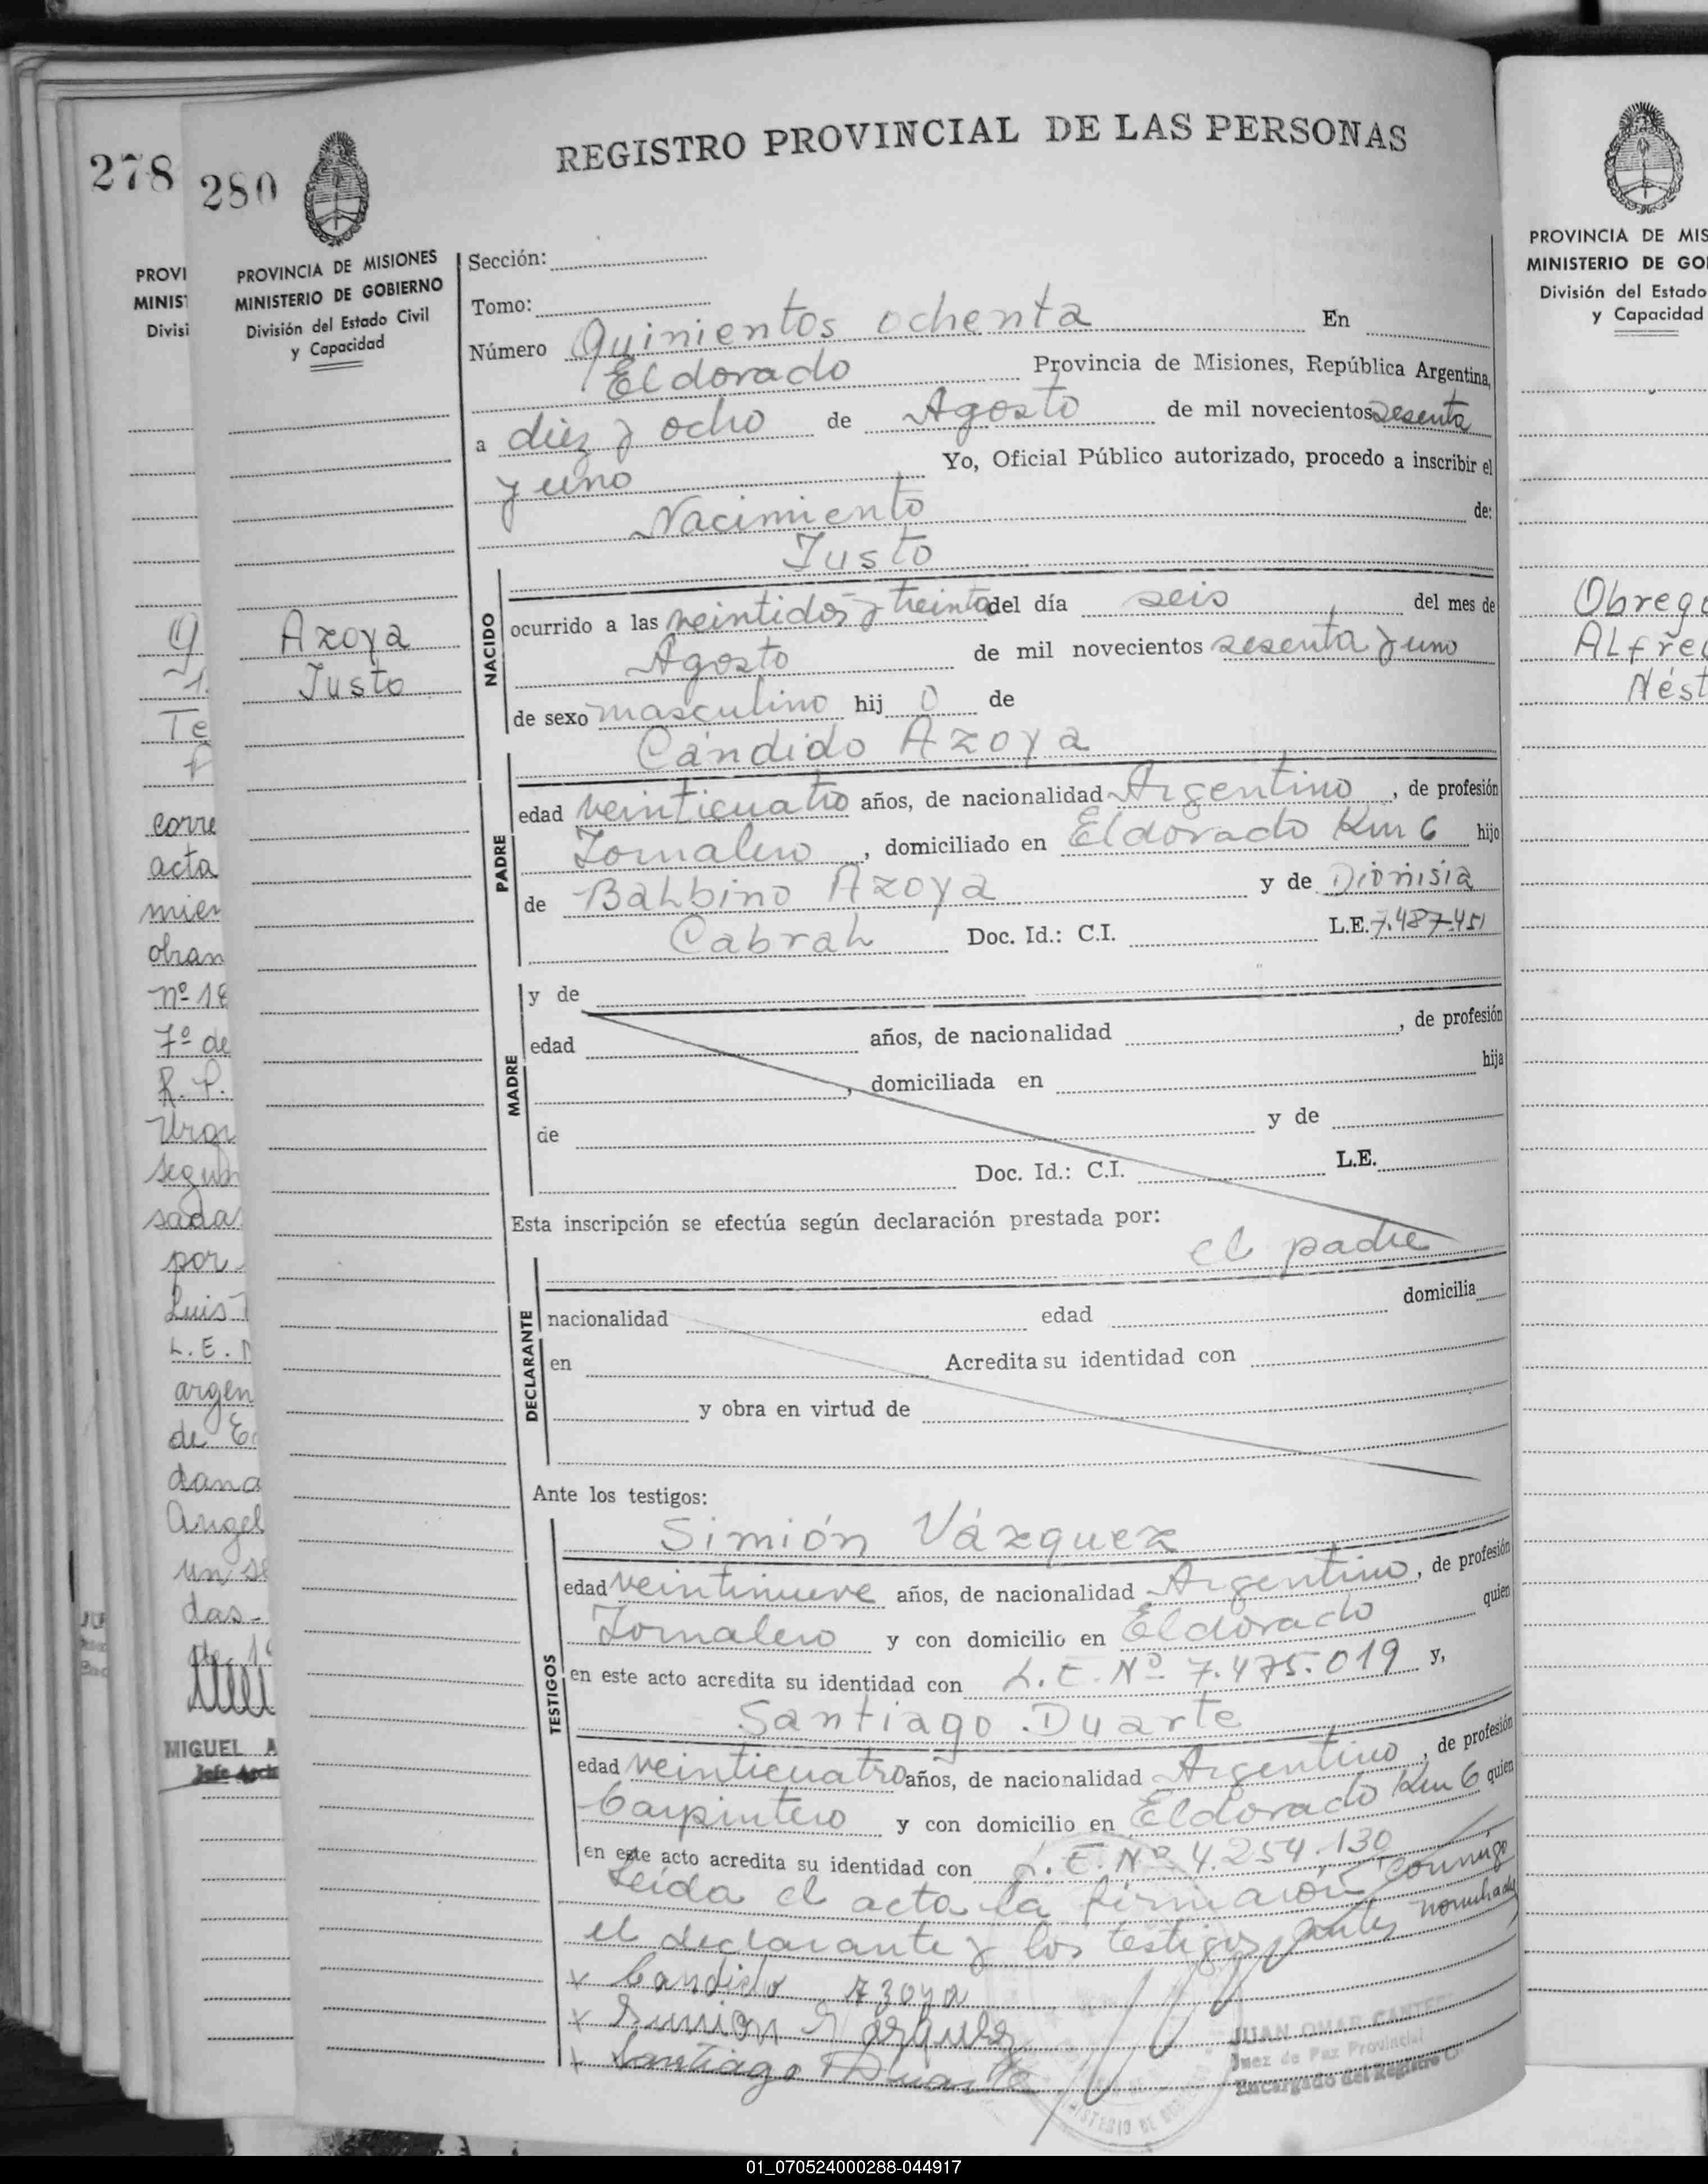 REGISTRO PROVINCIAL DE LAS PERSONAS
278
280
PROVI
MINIS
Divisi
PROVINCIA DE MISIONES
MINISTERIO DE GOBIERNO
División del Estado Civil
y Capacidad
Azoya
Justo
Sección:
Tomo:
Número Quinientos ochenta En
Eldorado Provincia de Misiones, República Argentina,
a diez y ocho de Agosto de mil novecientos sesenta
y uno Yo, Oficial Público autorizado, procedo a inscribir el
Nacimiento de:
Justo
NACIDO
ocurrido a las veintidos y treinta del día seis del mes de
Agosto de mil novecientos sesenta y uno
de sexo masculino hij o de
Cándido Azoya
PADRE
edad veinticuatro años, de nacionalidad Argentino, de profesión
Jornalero, domiciliado en Eldorado Km 6 hijo
de Balbino Azoya y de Dionisia
Cabral Doc. Id.: C.I. L.E. 7.487.451
MADRE
y de
edad años, de nacionalidad , de profesión
, domiciliada en hija
de y de
Doc. Id.: C.I. L.E.
Esta inscripción se efectúa según declaración prestada por:
el padre
DECLARANTE
nacionalidad edad domicilia
en Acredita su identidad con
y obra en virtud de
Ante los testigos:
TESTIGOS
Simión Vázquez
edad veintinueve años, de nacionalidad Argentino, de profesión
Jornalero y con domicilio en Eldorado quien
en este acto acredita su identidad con L.E. Nº 7.475.019 y,
Santiago Duarte
edad veinticuatro años, de nacionalidad Argentino, de profesión
Carpintero y con domicilio en Eldorado Km 6 quien
en este acto acredita su identidad con L.E. Nº 4.254.130
Leída el acta la firmaron conmigo
el declarante y los testigos antes nombrados
x Candido Azoya
x Simion Vazquez
x Santiago Duarte
JUAN OMAR CANTE
Juez de Paz Provincial
Encargado del Registro C
corre
acta
mien
obran
nº 18
7º de
R. P.
segun
sada
por
Luis
L. E.
argen
de
dana
Angel
un
das-
MIGUEL A
Jefe Arch
PROVINCIA DE MIS
MINISTERIO DE GO
División del Estado
y Capacidad
Obreg
Alfre
Nést
01_070524000288-044917